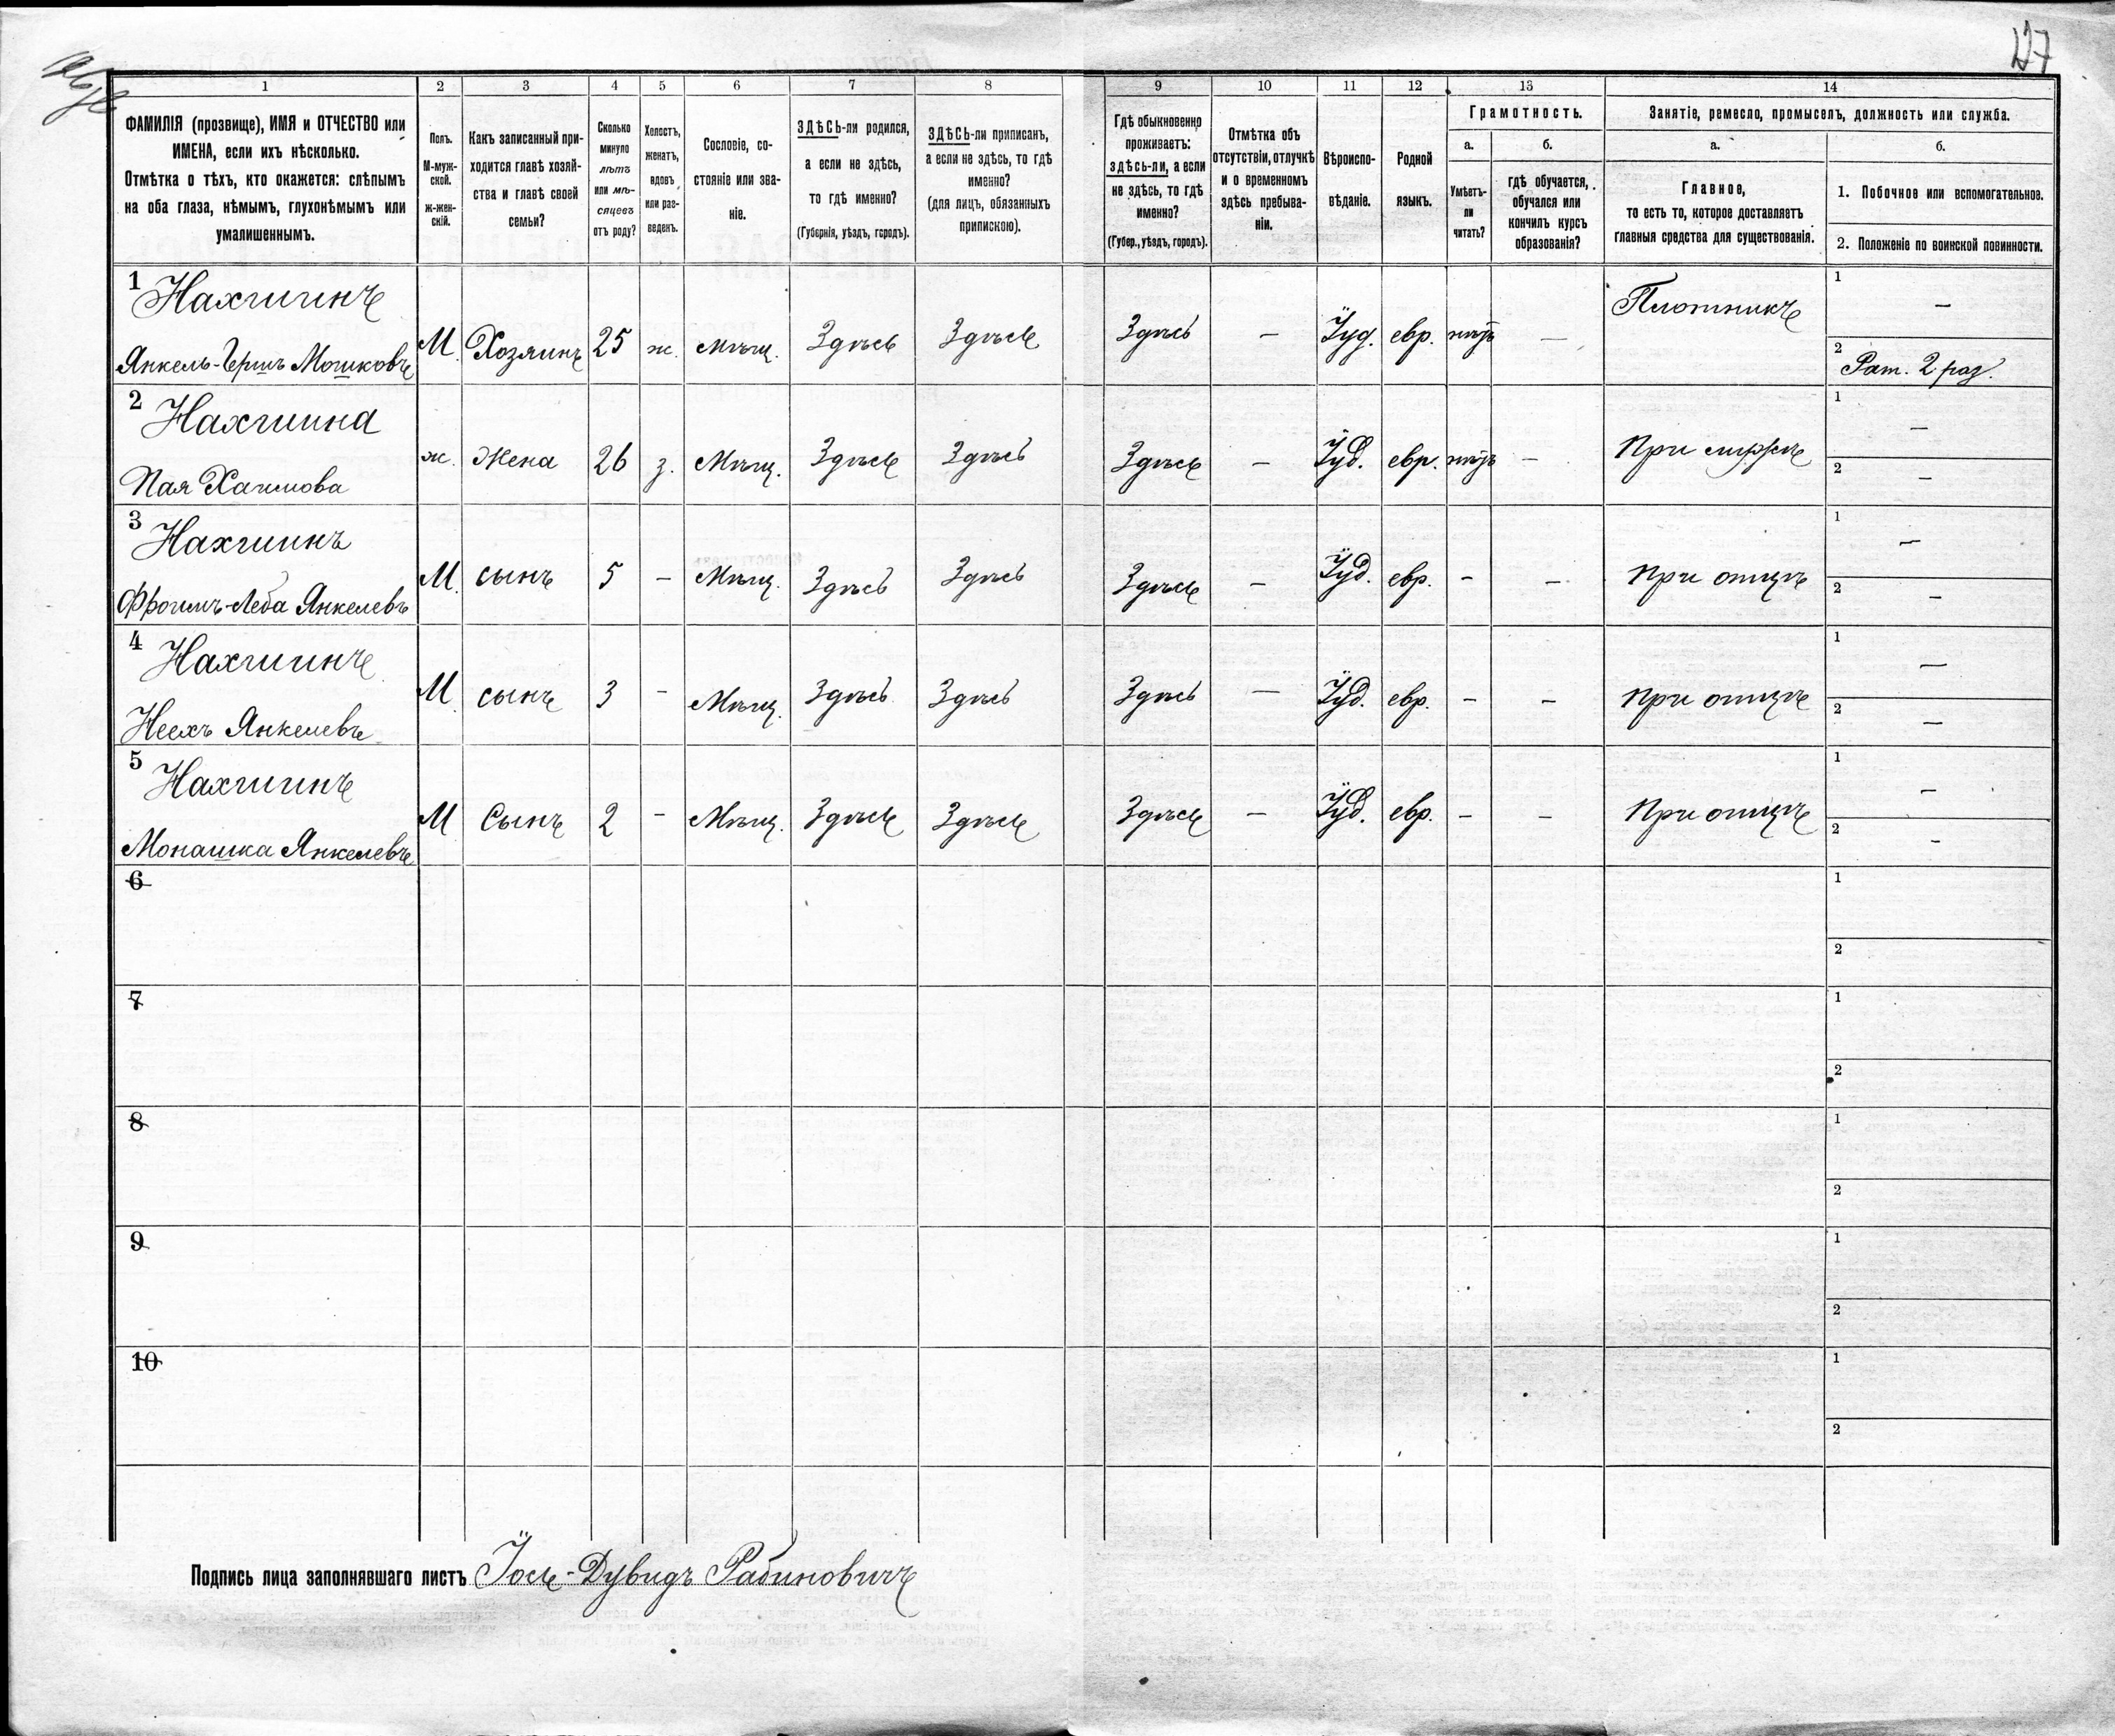 127
1
2
3
4
5
6
7
8
9
10
11
12
13
14
ФАМИЛІЯ (прозвище), ИМЯ и ОТЧЕСТВО или
ИМЕНА, если ихъ нѣсколько.
Отмѣтка о тѣхъ, кто окажется: слѣпымъ
на оба глаза, нѣмымъ, глухонѣмымъ или
умалишеннымъ.
Полъ.
М-муж-
ской.
ж-жен-
скій.
Какъ записанный при-
ходится главѣ хозяй-
ства и главѣ своей
семьи?
Сколько
минуло
лѣтъ
или мѣ-
сяцевъ
отъ роду?
Холостъ,
женатъ,
вдовъ
или раз-
веденъ.
Сословіе, со-
стояніе или зва-
ніе.
ЗДѢСЬ-ли родился,
а если не здѣсь,
то гдѣ именно?
(Губернія, уѣздъ, городъ).
ЗДѢСЬ-ли приписан,
а если не здѣсь, то гдѣ
именно?
(для лицъ, обязанныхъ
припискою).
Гдѣ обыкновенно
проживаетъ:
здѣсь-ли, а если
не здѣсь, то гдѣ
именно?
(Губер., уѣздъ, городъ).
Отмѣтка объ
отсутствіи, отлучкѣ
и о временномъ
здѣсь пребыва-
ніи.
Вѣроиспо-
вѣданіе.
Родной
языкъ.
Грамотность.
а.
Умѣетъ-
ли
читать?
б.
гдѣ обучается,
обучался или
кончилъ курсъ
образованія?
Занятіе, ремесло, промыселъ, должность или служба.
а.
Главное,
то есть то, которое доставляетъ
главныя средства для существованія.
б.
1. Побочное или вспомогательное.
2. Положеніе по воинской повинности.
1 Нахшинъ
Янкель-Гершъ Мошковъ М. Хозяинъ 25 ж. мѣщ. Здѣсь Здѣсь Здѣсь — Іуд. евр. нѣтъ — Плотникъ 1 — 2 Рат. 2 раз.
2 Нахшина
Пая Хаимова ж. Жена 26 з. Мѣщ. Здѣсь Здѣсь Здѣсь — Іуд. евр. нѣтъ — При мужѣ 1 — 2 —
3 Нахшинъ
Фроимъ-Леба Янкелевъ М. сынъ 5 — Мѣщ. Здѣсь Здѣсь Здѣсь — Іуд. евр. — — При отцѣ 1 — 2 —
4 Нахшинъ
Неехъ Янкелевъ М. сынъ 3 — Мѣщ. Здѣсь Здѣсь Здѣсь — Іуд. евр. — — при отцѣ 1 — 2 —
5 Нахшинъ
Монашка Янкелевъ М Сынъ 2 — Мѣщ. Здѣсь Здѣсь Здѣсь — Іуд. евр. — — При отцѣ 1 — 2 —
6 1
2
7 1
2
8 1
2
9 1
2
10 1
2
Подпись лица заполнявшаго листъ Іось-Дувидъ Рабиновичъ